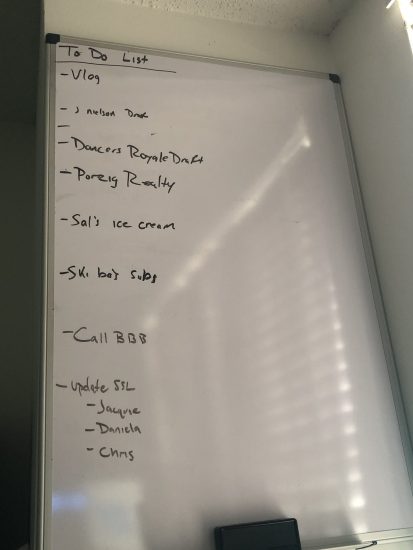 To Do List
- Vlog
- J nielson Draft
-
- Dancers Royale Draft
- Porzig Realty
- Sal's ice cream
- Skiba's subs
- Call BBB
- update SSL
- Jacquie
- Daniela
- Chris